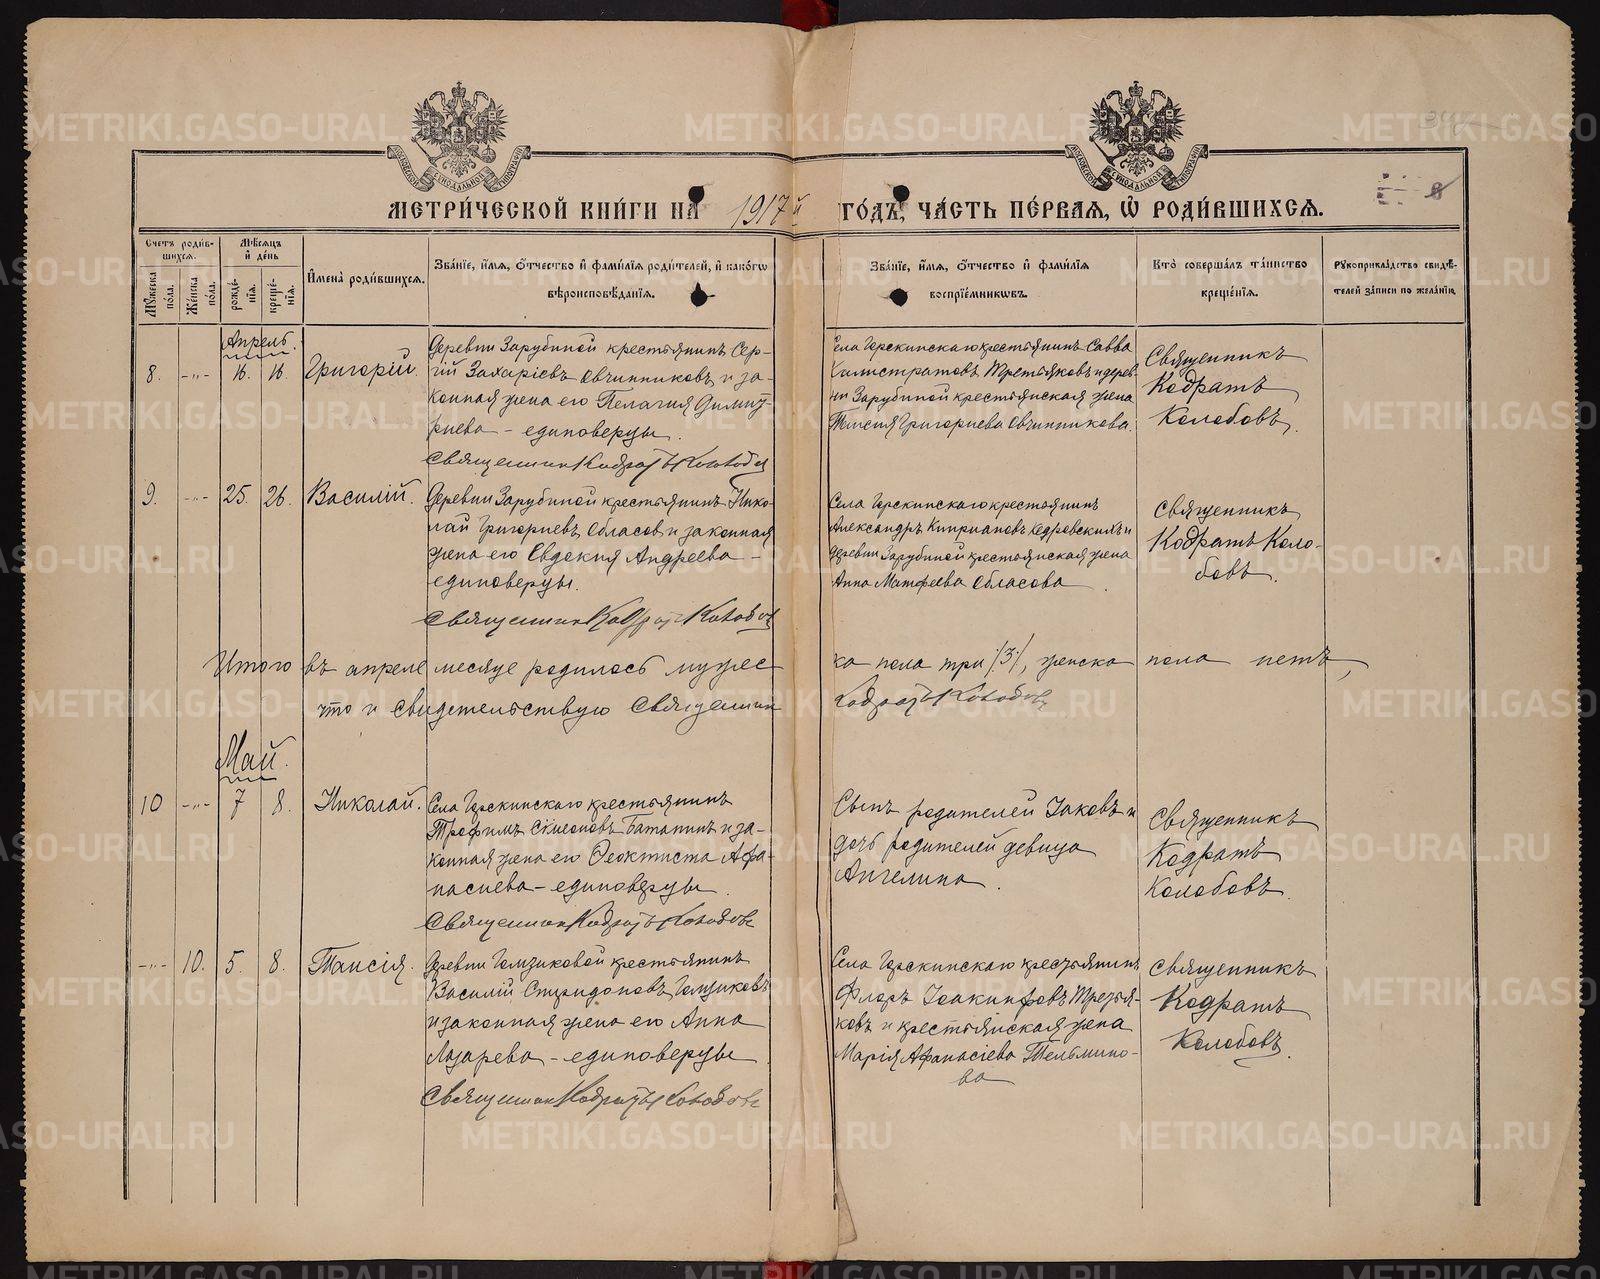 МЕТРИ́ЧЕСКОЙ КНИ́ГИ НА 1917й ГО́ДЪ, ЧА́СТЬ ПЕ́РВАЯ, Ѡ҆ РОДИ́ВШИХСЯ.
Счетъ роди́вшихся.
Мꙋ́жеска по́ла.
Же́нска по́ла.
Мѣ́сяцъ и҆ де́нь
рожде́нія.
креще́нія.
И҆мена̀ роди́вшихся.
Зва́нїе, и҆́мя, ѻ҆́тчество и҆ фами́лїя роди́телей, и҆ како́гѡ
вѣроисповѣ́данїя.
Зва́нїе, и҆́мя, ѻ҆́тчество и҆ фами́лїя
воспрїе́мникѡвъ.
Кто̀ соверша́лъ та́инство
креще́нїя.
Рꙋкоприкла́дство свидѣ́-
телей за́писи по жела́нїю.
Апрель.
8. -"- 16. 16. Григорій.
Деревни Зарубиной крестьянинъ Сер-
гій Захаріевъ Овчинниковъ и за-
конная жена его Пелагия Димит-
риева - единоверцы.
Священник Кодратъ Колобов
Села Герскинскаго крестьянинъ Савва
Калистратовъ Третьяковъ и дерев-
ни Зарубиной крестьянская жена
Таисия Григориева Овчинникова.
Священникъ
Кодратъ
Колобовъ.
9. -"- 25. 26. Василій.
Деревни Зарубиной крестьянинъ Нико-
лай Григориевъ Обласов и законная
жена его Евдокия Андреева -
единоверцы.
Священник Кодратъ Колобов
Села Герскинскаго крестьянинъ
Александръ Киприановъ Кедровскихъ и
деревни Зарубиной крестьянская жена
Анна Матфеева Обласова
Священникъ
Кодратъ Коло-
бовъ.
Итого въ апреле месяце родилось мужес
ка пола три /3/, женска пола нетъ,
что и свидетельствую Священник
Кодратъ Колобовъ
Май.
10 -"- 7 8. Николай.
Села Герскинскаго крестьянинъ
Трофимъ Симеоновъ Батанинъ и за-
конная жена его Феоктиста Афа-
насиева - единоверцы.
Священник Кодратъ Колобовъ
Сынъ родителей Іаковъ и
дочь родителей девица
Ангелина.
Священникъ
Кодратъ
Колобовъ.
-"- 10. 5. 8. Таисія.
Деревни Гомзиковой крестьянинъ
Василій Спиридоновъ Гомзиковъ
и законная жена его Анна
Лазарева - единоверцы.
Священник Кодратъ Колобовъ
Села Герскинскаго крестьянинъ
Флоръ Іоакинфовъ Третья-
ковъ и крестьянская жена
Марія Афанасіева Тельмино-
ва
Священникъ
Кодратъ
Колобовъ.
METRIKI.GASO-URAL.RU